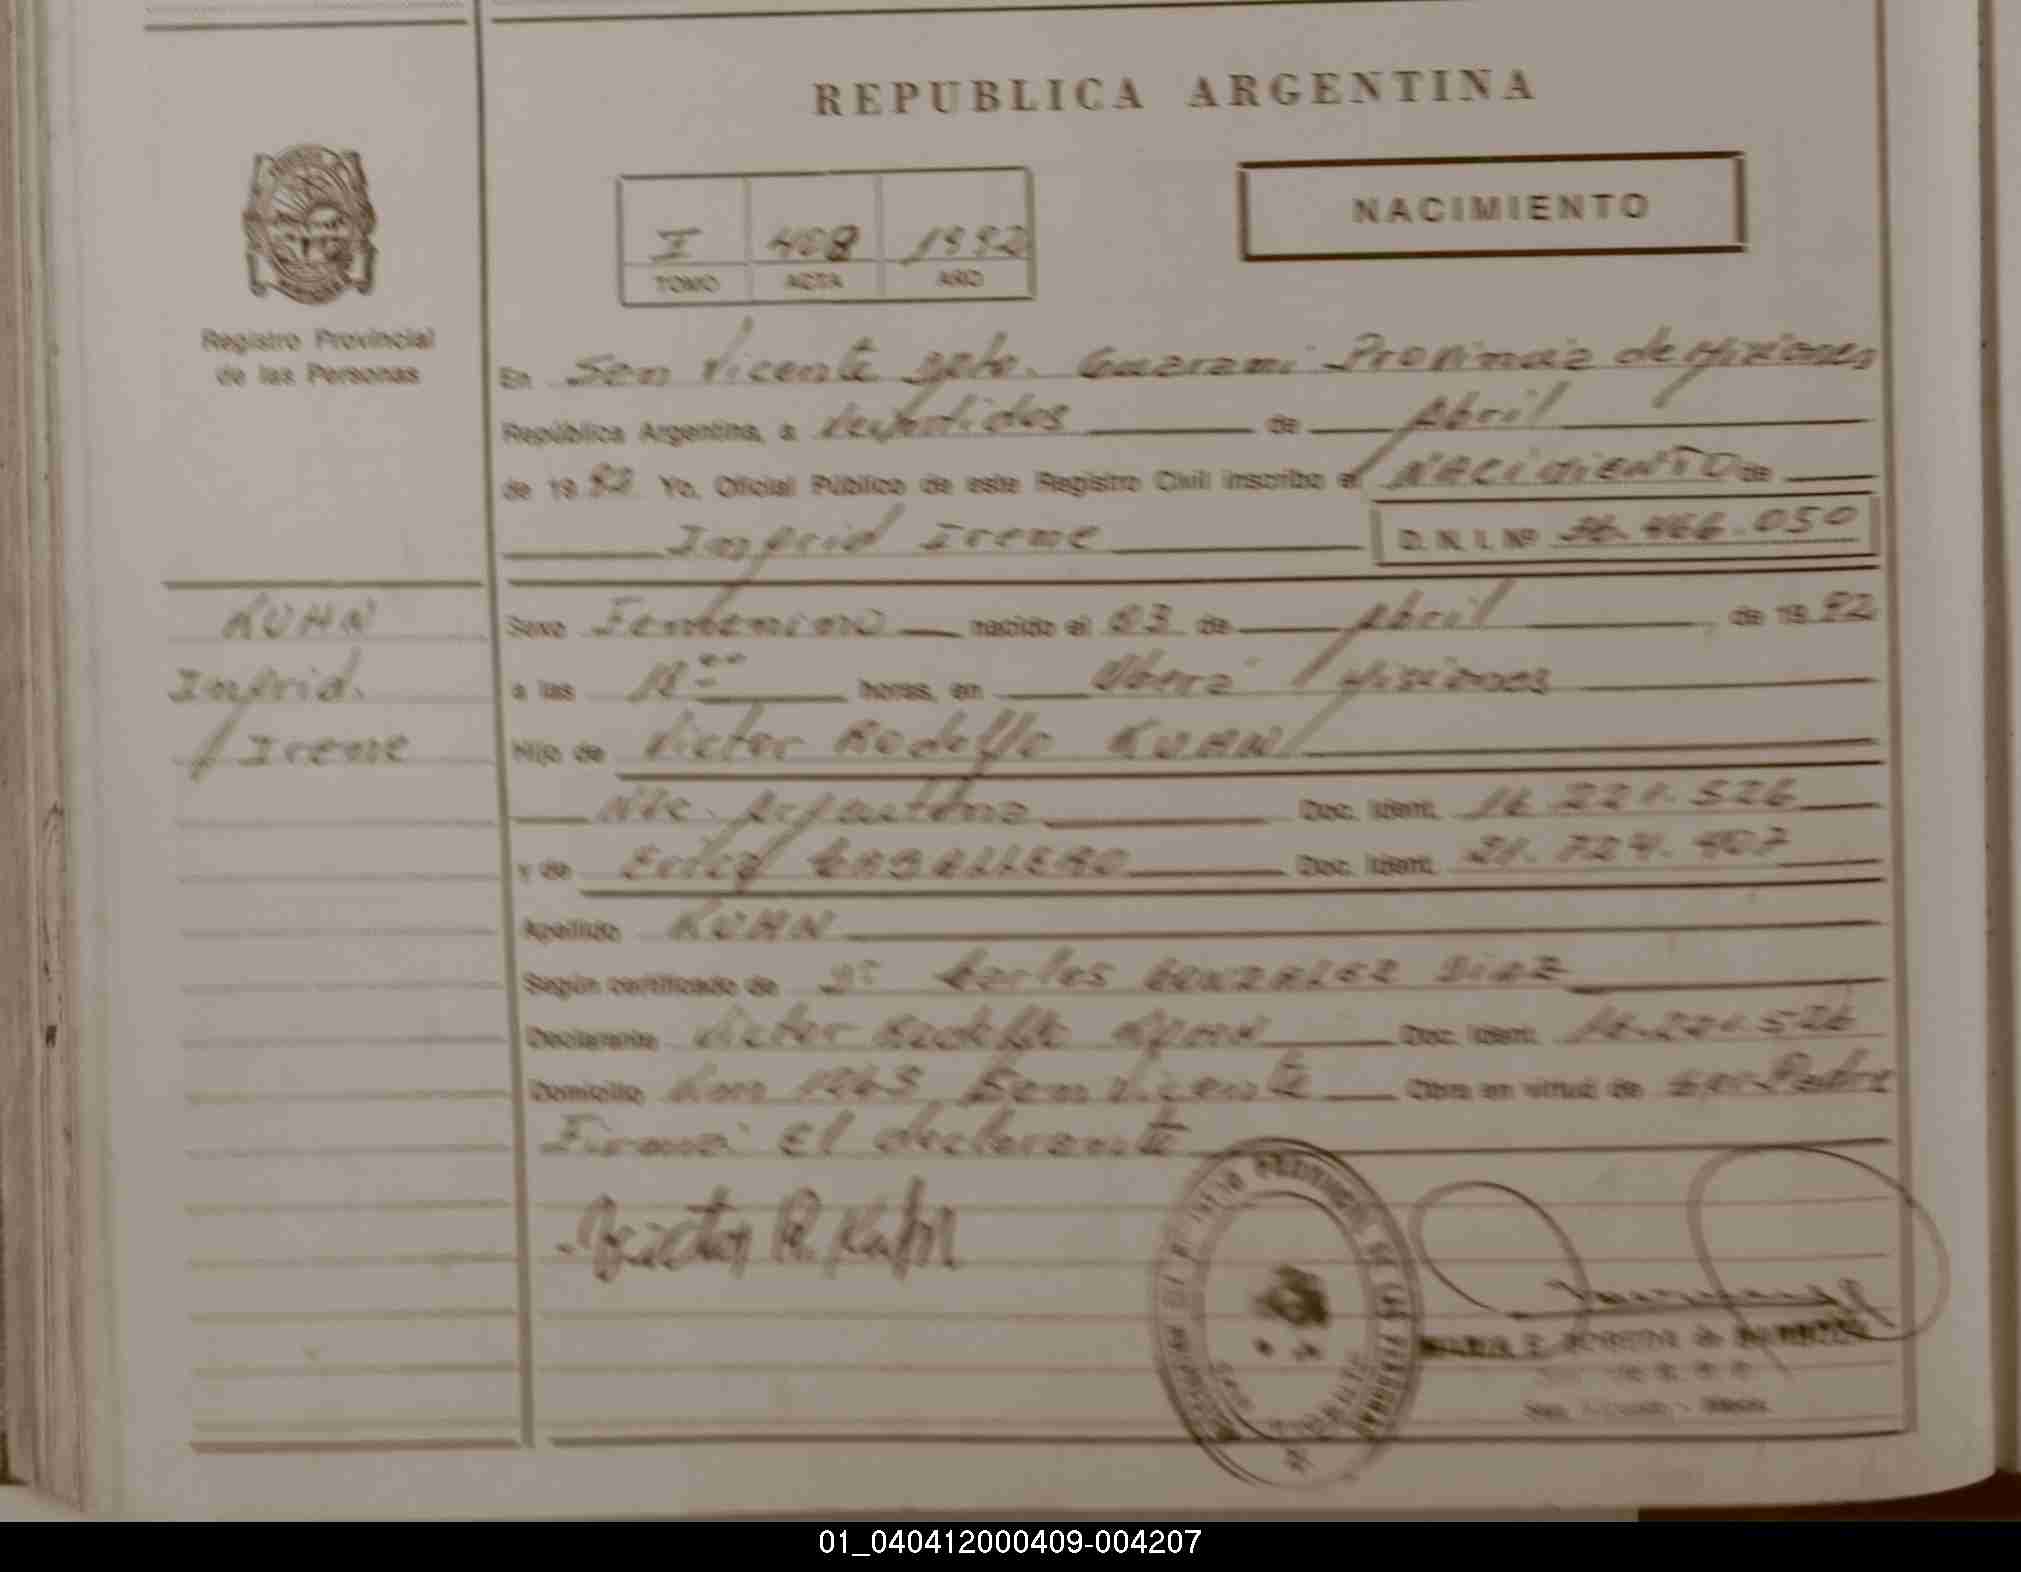 REPUBLICA ARGENTINA
NACIMIENTO
I 408 1992
TOMO ACTA AÑO
Registro Provincial
de las Personas
En San Vicente Dpto. Guarani Provincia de Misiones
República Argentina, a veintidos de Abril
de 1992 Yo, Oficial Público de este Registro Civil inscribo el NACIMIENTO de
Ingrid Irene D. N. I. Nº 36.466.050
KUHN
Ingrid.
Irene
Sexo Femenino nacido el 03 de Abril de 1992
a las horas, en Oberá Misiones
Hijo de Victor Rodolfo KUHN
Nac. Argentina Doc. Ident. 16.221.526
y de Erica CABALLERO Doc. Ident. 21.724.407
Apellido KUHN
Según certificado de Dr Carlos GONZALEZ DIAZ
Declarante Victor Rodolfo KUHN Doc. Ident. 16.221.526
Domicilio Km 1263 San Vicente Obra en virtud de ser Padre
Firma: El declarante
Victor R. Kuhn
REGISTRO PROVINCIAL DE LAS PERSONAS
MARIA E.
San Vicente - Mnes.
01_040412000409-004207